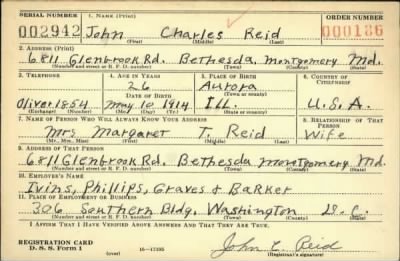 SERIAL NUMBER 1. NAME (Print) ORDER NUMBER
002942 John Charles Reid 000186
(First) (Middle) (Last)
2. ADDRESS (Print)
6811 Glenbrook Rd. Bethesda, Montgomery Md.
(Number and street or R. F. D. number) (Town) (County) (State)
3. TELEPHONE 4. AGE IN YEARS 5. PLACE OF BIRTH 6. COUNTRY OF CITIZENSHIP
26 Aurora
DATE OF BIRTH (Town or county)
Oliver 1854 May 10, 1914 Ill. U.S.A.
(Exchange) (Number) (Mo.) (Day) (Yr.) (State or country)
7. NAME OF PERSON WHO WILL ALWAYS KNOW YOUR ADDRESS 8. RELATIONSHIP OF THAT PERSON
Mrs Margaret T. Reid Wife
(Mr., Mrs., Miss) (First) (Middle) (Last)
9. ADDRESS OF THAT PERSON
6811 Glenbrook Rd. Bethesda Montgomery Md.
(Number and street or R. F. D. number) (Town) (County) (State)
10. EMPLOYER'S NAME
Ivins, Phillips, Graves & Barker
11. PLACE OF EMPLOYMENT OR BUSINESS
306 Southern Bldg. Washington D.C.
(Number and street or R. F. D. number) (Town) (County) (State)
I AFFIRM THAT I HAVE VERIFIED ABOVE ANSWERS AND THAT THEY ARE TRUE.
REGISTRATION CARD
D. S. S. Form 1 (over) 16-17105 John C. Reid
(Registrant's signature)